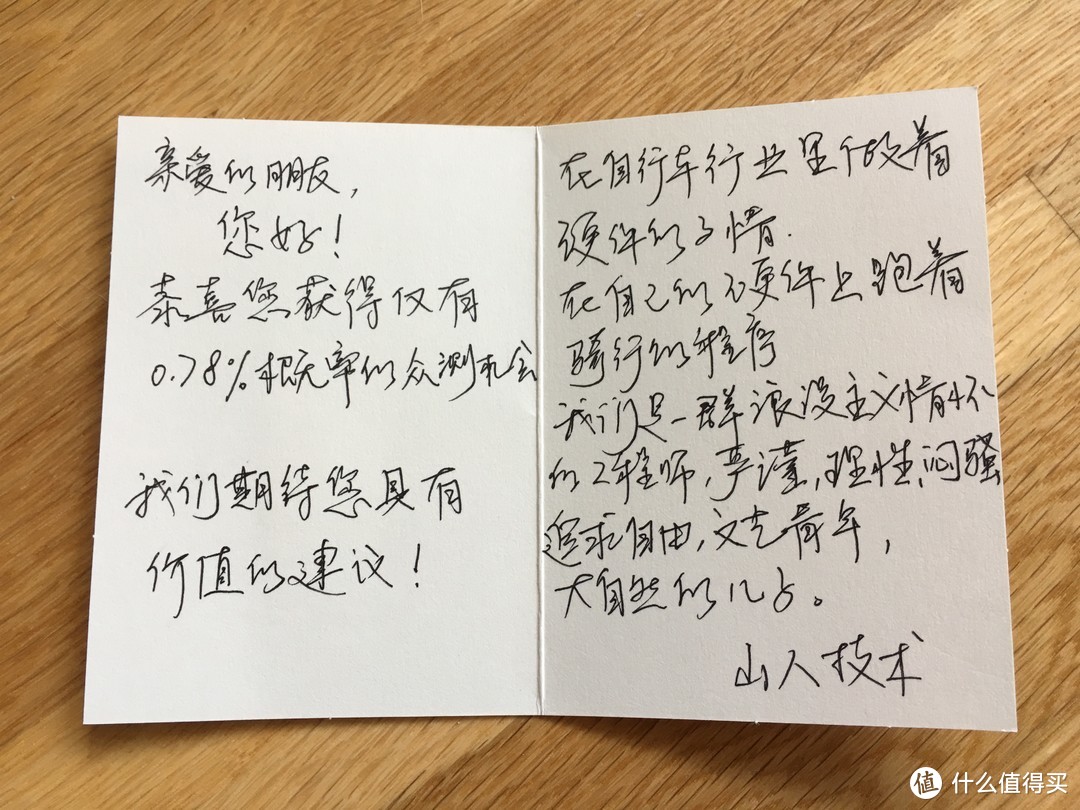 亲爱的朋友，
您好！
恭喜您获得仅有
0.78%概率的众测机会
我们期待您具有
价值的建议！
在自行车行业里做着
硬件的事情.
在自己的硬件上跑着
骑行的程序
我们是一群浪漫主义情怀
的工程师，严谨，理性，闷骚
追求自由，文艺青年，
大自然的儿子。
山人技术
值 什么值得买